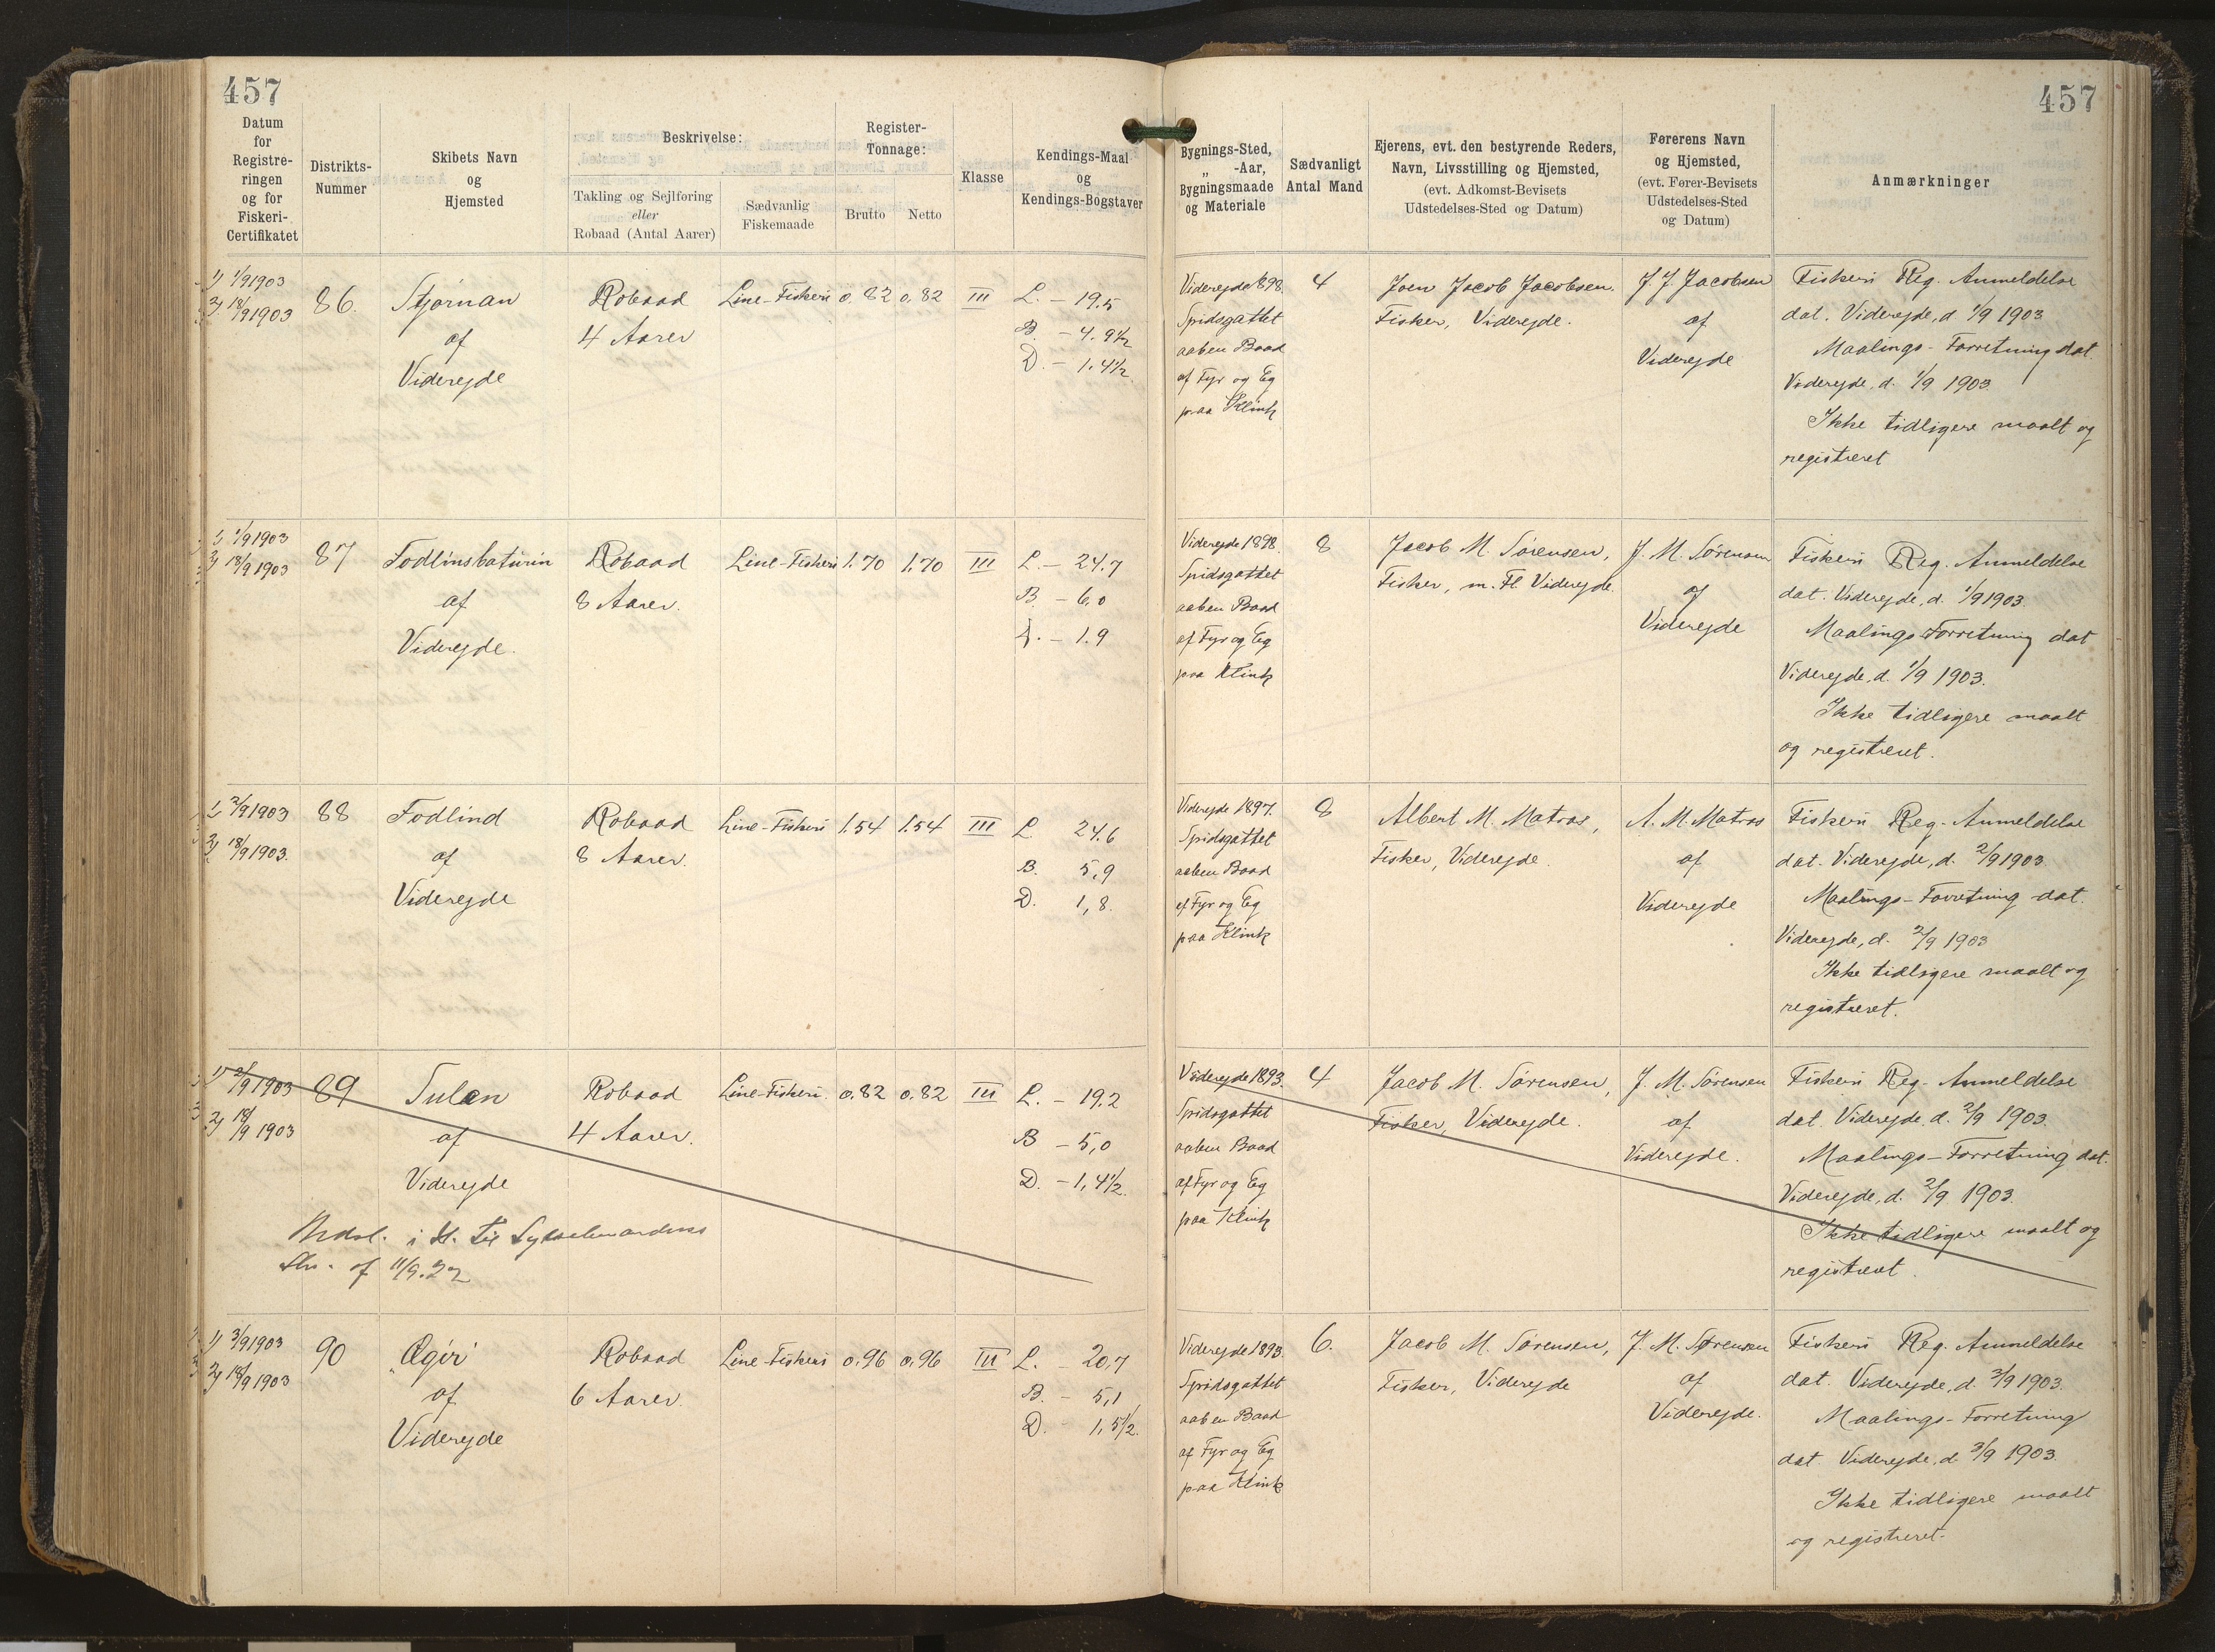 457
457
Datum for Registreringen og for Fiskeri-Certifikatet
Distrikts-Nummer
Skibets Navn og Hjemsted
Beskrivelse:
Takling og Sejlføring eller Robaad (Antal Aarer)
Sædvanlig Fiskemaade
Register-Tonnage:
Brutto
Netto
Klasse
Kendings-Maal og Kendings-Bogstaver
Bygnings-Sted, „ -Aar, Bygningsmaade og Materiale
Sædvanligt Antal Mand
Ejerens, evt. den bestyrende Reders, Navn, Livsstilling og Hjemsted, (evt. Adkomst-Bevisets Udstedelses-Sted og Datum)
Førerens Navn og Hjemsted, (evt. Fører-Bevisets Udstedelses-Sted og Datum)
Anmærkninger
1) 1/9 1903
2) 18/9 1903
86.
Stjørnan
af
Viderejde
Robaad
4 Aarer
Line-Fiskeri
0.82
0,82
III
L. – 19.5
B. – 4.9½
D. – 1.4½
Viderejde 1898.
Spidsgattet
aaben Baad
af Fyr og Eg
paa Klink
4
Joen Jacob Jacobsen.
Fisker, Viderejde.
J. J. Jacobsen
af
Viderejde
Fiskeri Reg. Anmeldelse
dat. Viderejde, d. 1/9 1903
Maalings-Forretning dat.
Viderejde, d. 1/9 1903.
Ikke tidligere maalt og
registreret
1) 1/9 1903
2) 18/9 1903
87
Fodlinsbaturin
af
Viderejde.
Robaad
8 Aarer.
Line-Fiskeri
1.70
1,70
III
L. – 24.7
B. – 6,0
D. – 1.9
Viderejde 1898.
Spidsgattet
aaben Baad
af Fyr og Eg
paa Klink
8
Jacob M. Sørensen,
Fisker, m. Fl. Viderejde.
J. M. Sørensen
af
Viderejde
Fiskeri Reg. Anmeldelse
dat. Viderejde, d. 1/9 1903.
Maalings-Forretning dat
Viderejde, d. 1/9 1903.
Ikke tidligere maalt
og registreret.
1) 2/9 1903
2) 18/9 1903.
88
Fodlind
af
Viderejde
Robaad
8 Aarer.
Line-Fiskeri
1.54
1.54
III
L 24.6
B. 5,9
D. 1,8.
Viderejde 1897.
Spidsgattet
aaben Baad
af Fyr og Eg
paa Klink
8
Albert M. Matras,
Fisker, Viderejde.
A. M. Matras
af
Viderejde
Fiskeri Reg. Anmeldelse
dat. Viderejde, d. 2/9 1903
Maalings-Forretning dat.
Viderejde, d. 2/9 1903
Ikke tidligere maalt og
registreret.
1) 2/9 1903
2) 18/9 1903
89
Sulan
af
Viderejde
Robaad
4 Aarer.
Line-Fiskeri.
0.82
0,82
III
L. – 19.2
B – 5,0
D. – 1,4½.
i H. til Sysselmandens
Skr. af 11/9.22
Viderejde 1893.
Spidsgattet
aaben Baad
af Fyr og Eg
paa Klink
4
Jacob M. Sørensen,
Fisker, Viderejde.
J. M. Sørensen
af
Viderejde.
Fiskeri Reg. Anmeldelse
dat. Viderejde, d. 2/9 1903.
Maalings-Forretning dat.
Viderejde, d. 2/9 1903.
Ikke tidligere maalt og
registreret.
1) 3/9 1903
2) 18/9 1903
90
Ægir
af
Viderejde
Robaad
6 Aarer.
Line-Fiskeri
0.96
0,96
III
L. – 20,7
B. – 5,1
D. – 1,5½.
Viderejde 1893.
Spidsgattet
aaben Baad
af Fyr og Eg
paa Klink
6.
Jacob M. Sørensen,
Fisker, Viderejde
J. M. Sørensen
af
Viderejde.
Fiskeri Reg. Anmeldelse
dat. Viderejde, d. 3/9 1903.
Maalings-Forretning
dat. Viderejde, d. 3/9 1903.
Ikke tidligere maalt
og registreret.